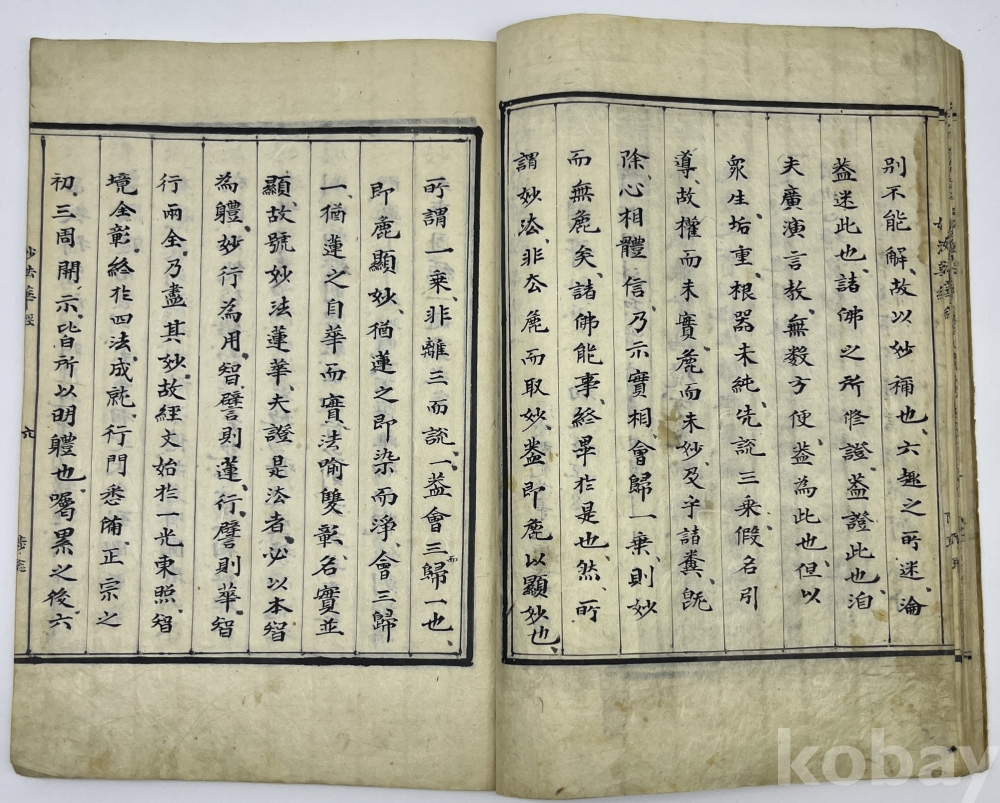 別不能解、故以妙稱也、六趣之所迷、淪
葢迷此也、諸佛之所修證葢證此也、洎
夫廣演言教、無数方便葢為此也、但以
衆生垢重、根器未純、先説三乗假名引
導、故權而未實、麁而未妙、及乎諸糞既
除、心相體信、乃示實相、會歸一乗、則妙
而無麁矣、諸佛能事、終畢於是也、然、所
謂妙法、非去麁而取妙、葢即麁以顯妙也、
所謂一乗、非離三而説一、葢會三而歸一也、
即麁顯妙、猶蓮之即染而淨、會三歸
一、猶蓮之自華而實、法喻雙彰、名實並
顯、故號妙法蓮華、夫證是法者、必以本智
為體、妙行為用、智譬則蓮、行譬則華、智
行兩全、乃盡其妙、故經文始於一光東照、智
境全彰、終於四法、成就、行門悉俻、正宗之
初、三周開、示、皆所以明體也、囑累之後、六
妙法華經
六
kobay